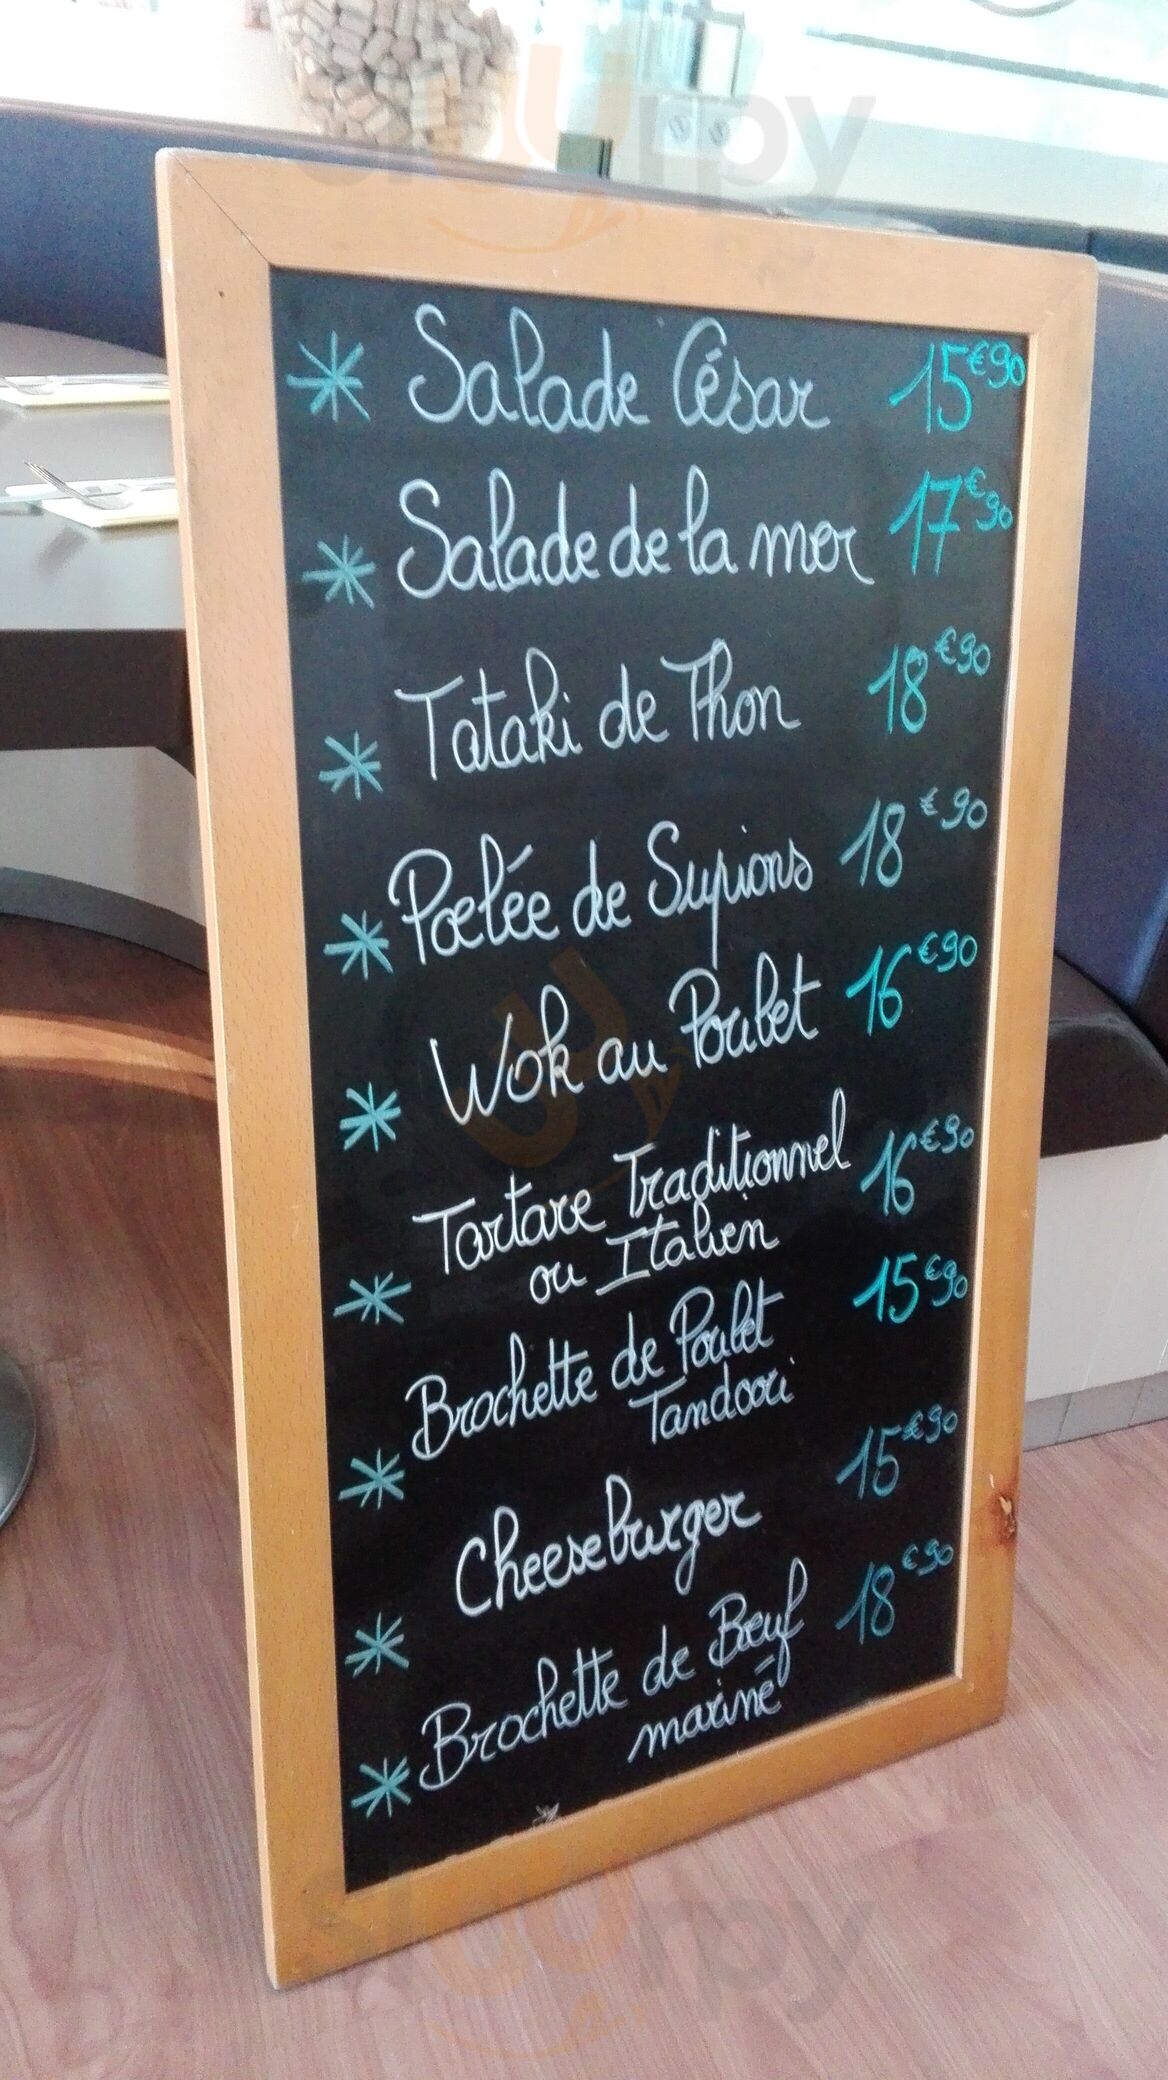 sluurpy
* Salade César 15€90
* Salade de la mer 17€90
* Tataki de Thon 18€90
* Poelée de Supions 18€90
* Wok au Poulet 16€90
* Tartare Traditionnel 16€90
ou Italien
* Brochette de Poulet 15€90
Tandoori
* Cheeseburger 15€90
* Brochette de Bœuf 18€90
mariné
sluurpy